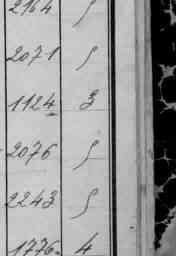 2164 S
2071 S
1124 3
2076 S
2243 S
1776. 4